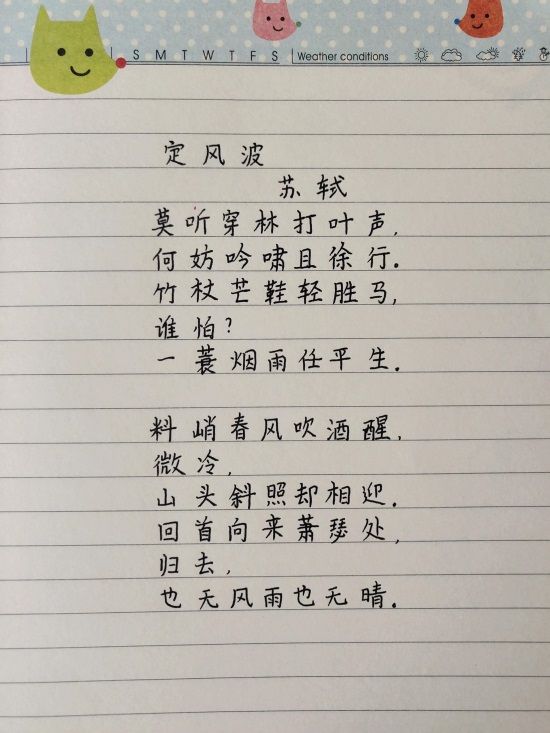 S M T W T F S Weather conditions
定风波
苏轼
莫听穿林打叶声,
何妨吟啸且徐行.
竹杖芒鞋轻胜马,
谁怕?
一蓑烟雨任平生.
料峭春风吹酒醒,
微冷,
山头斜照却相迎.
回首向来萧瑟处,
归去,
也无风雨也无晴.